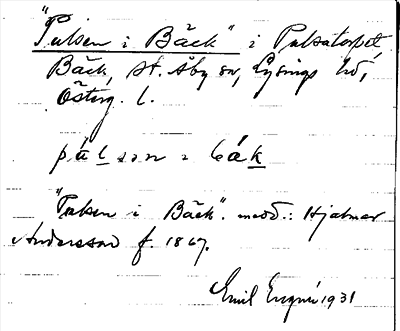 "Pulsen i Bäck" i Pulsatorpet,
Bäck, St. Åby sn, Lysings hd,
Österg. l.
pálsən i bák
"Pulsen i Bäck". medd.: Hjalmar
Andersson f. 1867.
Emil 1931